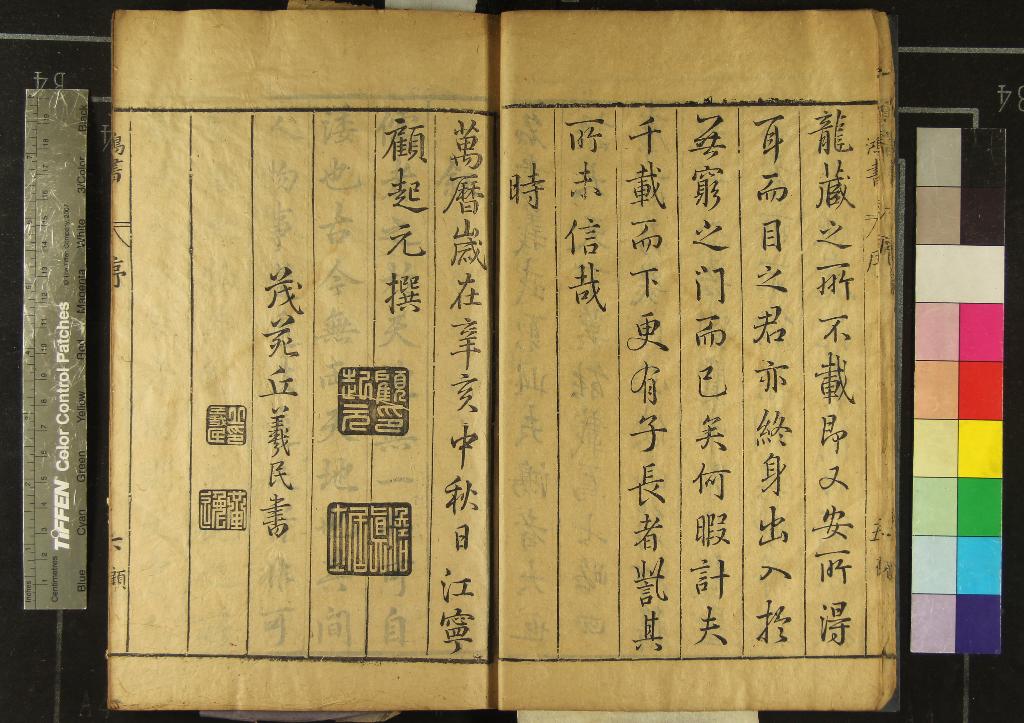 龍藏之所不載即又安所得
耳而目之君亦終身出入於
無窮之门而已矣何暇計夫
千載而下更有子長者訾其
所未信哉
時
萬曆歲在辛亥中秋日江寧
顧起元撰
茂苑丘義民書
顧印起元
鴻書
序
五
TIFFEN Color Control Patches
Blue Cyan Green Yellow Red Magenta White 3/Color Black
Inches
Centimetres
B4